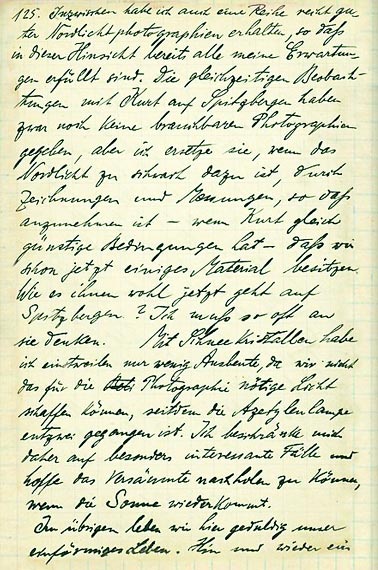 125. Inzwischen habe ich auch eine Reihe recht gu-
ter Nordlichtphotographien erhalten, so daß
in dieser Hinsicht bereits alle meine Erwartun-
gen erfüllt sind. Die gleichzeitigen Beobach-
tungen mit Kurt auf Spitzbergen haben
zwar noch keine brauchbaren Photographien
gegeben, aber ich ersetze sie, wenn das
Nordlicht zu schwach dazu ist, durch
Zeichnungen und Messungen, so daß
anzunehmen ist – wenn Kurt gleich
günstige Bedingungen hat – daß wir
schon jetzt einiges Material besitzen.
Wie es ihnen wohl jetzt geht auf
Spitzbergen? Ich muß so oft an
sie denken. Mit Schneekristallen habe
ich einstweilen nur wenig Ausbeute, da wir nicht
das für die Photographie nötige Licht
schaffen können, seitdem die Azetylenlampe
entzwei gegangen ist. Ich beschränke mich
daher auf besonders interessante Fälle und
hoffe das Versäumte nachholen zu können,
wenn die Sonne wiederkommt.
Im übrigen leben wir hier geduldig unser
einförmiges Leben. Hin und wieder ein